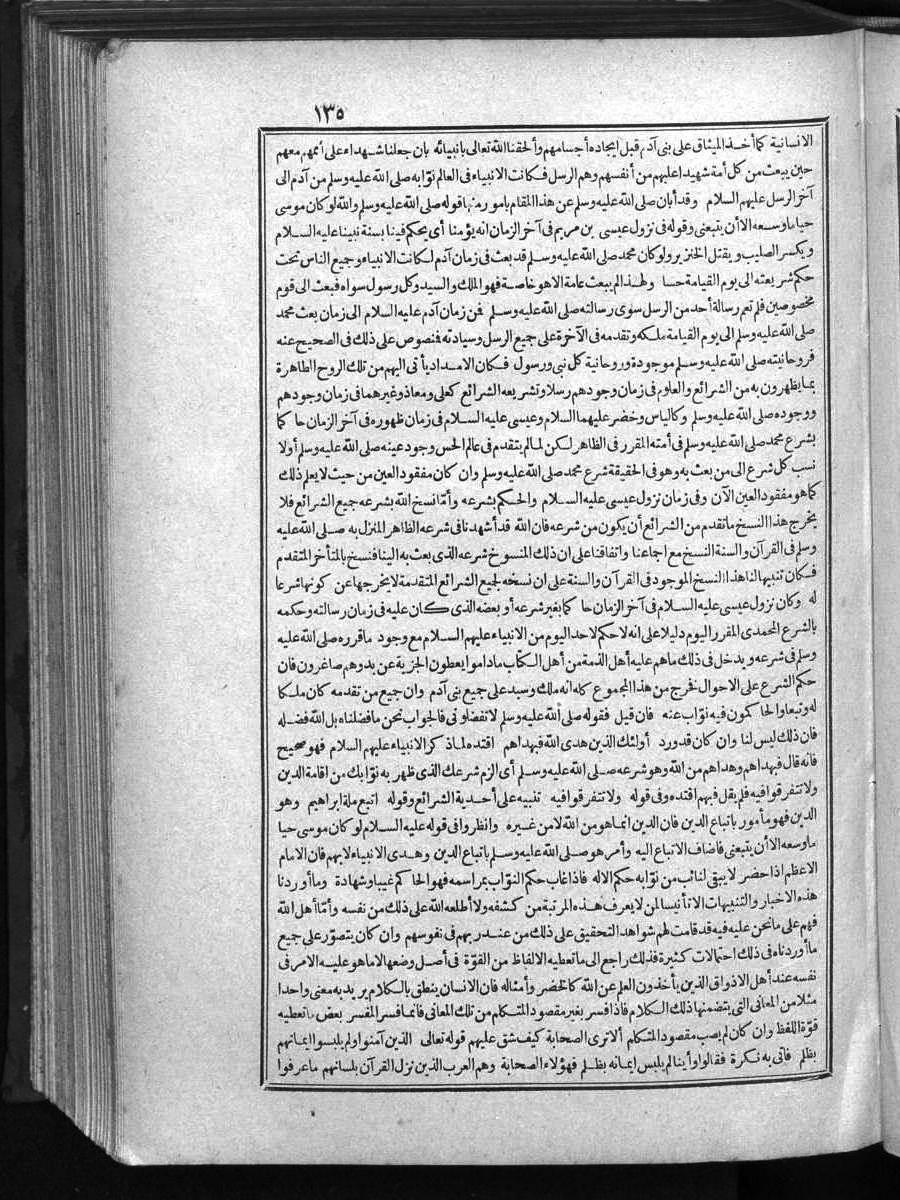 ١٣٥
الانسانية كما أخذ الميثاق على بنى آدم قبل ايجاده أجسامهم وألحقنا الله تعالى بانبيائه بان جعلنا شهداء على أممهم معهم
حين يبعث من كل أمة شهيدا عليهم من أنفسهم وهم الرسل فكانت الانبياء فى العالم نوّابه صلى الله عليه وسلم من آدم الى
آخر الرسل عليهم السلام وقد أبان صلى الله عليه وسلم عن هذا المقام بامور منها قوله صلى الله عليه وسلم والله لو كان موسى
حيا ما وسعه الا أن يتبعنى وقوله فى نزول عيسى بن مريم فى آخر الزمان انه يؤمنا أى يحكم فينا بسنة نبينا عليه السلام
ويكسر الصليب ويقتل الخنزير ولو كان محمد صلى الله عليه وسلم قد بعث فى زمان آدم لكانت الانبياء وجميع الناس تحت
حكم شريعته الى يوم القيامة حسا ولهذا لم يبعث عامة الا هو خاصة فهو الملك والسيد وكل رسول سواه فبعث الى قوم
مخصوصين فلم تعم رسالة أحد من الرسل سوى رسالته صلى الله عليه وسلم فمن زمان آدم عليه السلام الى زمان بعث محمد
صلى الله عليه وسلم الى يوم القيامة ملكه وتقدمه فى الآخرة على جميع الرسل وسيادته فنصوص على ذلك فى الصحيح عنه
فروحانيته صلى الله عليه وسلم موجودة وروحانية كل نبى ورسول فكان الامداد يأتى اليهم من تلك الروح الطاهرة
بما يظهرون به من الشرائع والعلوم فى زمان وجودهم رسلا وتشريعه الشرائع كعلى ومعاذ وغيرهما فى زمان وجودهم
ووجوده صلى الله عليه وسلم وكالياس وخضر عليهما السلام وعيسى عليه السلام فى زمان ظهوره فى آخر الزمان حاكما
بشرع محمد صلى الله عليه وسلم فى أمته المقرر فى الظاهر لكن لما لم يتقدم فى عالم الحس وجود عينه صلى الله عليه وسلم أولا
نسب كل شرع الى من بعث به وهو فى الحقيقة شرع محمد صلى الله عليه وسلم وان كان مفقود العين من حيث لا يعلم ذلك
كما هو مفقود العين الآن وفى زمان نزول عيسى عليه السلام والحكم بشرعه وأمّا نسخ الله بشرعه جميع الشرائع فلا
يخرج هذا النسخ ما تقدم من الشرائع أن يكون من شرعه فان الله قد أشهدنا فى شرعه الظاهر المنزل به صلى الله عليه
وسلم فى القرآن والسنة النسخ مع اجماعنا واتفاقنا على ان ذلك المنسوخ شرعه الذى بعث به الينا فنسخ بالمتأخر المتقدم
فكان تنبيها لنا هذا النسخ الموجود فى القرآن والسنة على ان نسخه لجميع الشرائع المتقدمة لا يخرجها عن كونها شرعا
له وكان نزول عيسى عليه السلام فى آخر الزمان حاكما بغير شرعه أو بعضه الذى كان عليه فى زمان رسالته وحكمه
بالشرع المحمدى المقرر اليوم دليلا على انه لا حكم لاحد اليوم من الانبياء عليهم السلام مع وجود ما قرره صلى الله عليه
وسلم فى شرعه ويدخل فى ذلك ما هم عليه أهل الذمة من أهل الكتاب ما داموا يعطون الجزية عن يد وهم صاغرون فان
حكم الشرع على الاحوال فخرج من هذا المجموع كله انه ملك وسيد على جميع بنى آدم وان جميع من تقدمه كان ملكا
له وتبعا والحاكمون فيه نوّاب عنه فان قيل فقوله صلى الله عليه وسلم لا تفضلونى فالجواب نحن ما فضلناه بل الله فضله
فان ذلك ليس لنا وان كان قد ورد أولئك الذين هدى الله فبهداهم اقتده لما ذكر الانبياء عليهم السلام فهو صحيح
فانه قال فبهداهم وهداهم من الله وهو شرعه صلى الله عليه وسلم أى الزم شرعك الذى ظهر به نوّابك من اقامة الدين
ولا تتفرقوا فيه فلم يقل فبهم اقتده وفى قوله ولا تتفرقوا فيه تنبيه على أحدية الشرائع وقوله اتبع ملة ابراهيم وهو
الدين فهو مأمور باتباع الدين فان الدين انما هو من الله لا من غيره وانظروا فى قوله عليه السلام لو كان موسى حيا
ما وسعه الا أن يتبعنى فاضاف الاتباع اليه وأمر هو صلى الله عليه وسلم باتباع الدين وهدى الانبياء لا بهم فان الامام
الاعظم اذا حضر لا يبقى لنائب من نوّابه حكم الا له فاذا غاب حكم النوّاب بمراسمه فهو الحاكم غيبا وشهادة وما أوردنا
هذه الاخبار والتنبيهات الا تأنيسا لمن لا يعرف هذه المرتبة من كشفه ولا أطلعه الله على ذلك من نفسه وأمّا أهل الله
فهم على ما نحن عليه فيه قد قامت لهم شواهد التحقيق على ذلك من عند ربهم فى نفوسهم وان كان يتصوّر على جميع
ما أوردناه فى ذلك احتمالات كثيرة فذلك راجع الى ما تعطيه الالفاظ من القوّة فى أصل وضعها لا ما هو عليه الامر فى
نفسه عند أهل الاذواق الذين يأخذون العلم عن الله كالخضر وأمثاله فان الانسان ينطق بالكلام يريد به معنى واحدا
مثلا من المعانى التى يتضمنها ذلك الكلام فاذا فسر بغير مقصود المتكلم من تلك المعانى فانما فسر المفسر بعض ما تعطيه
قوّة اللفظ وان كان لم يصب مقصود المتكلم ألا ترى الصحابة كيف شق عليهم قوله تعالى الذين آمنوا ولم يلبسوا ايمانهم
بظلم فاتى به نكرة فقالوا وأينا لم يلبس ايمانه بظلم فهؤلاء الصحابة وهم العرب الذين نزل القرآن بلسانهم ما عرفوا